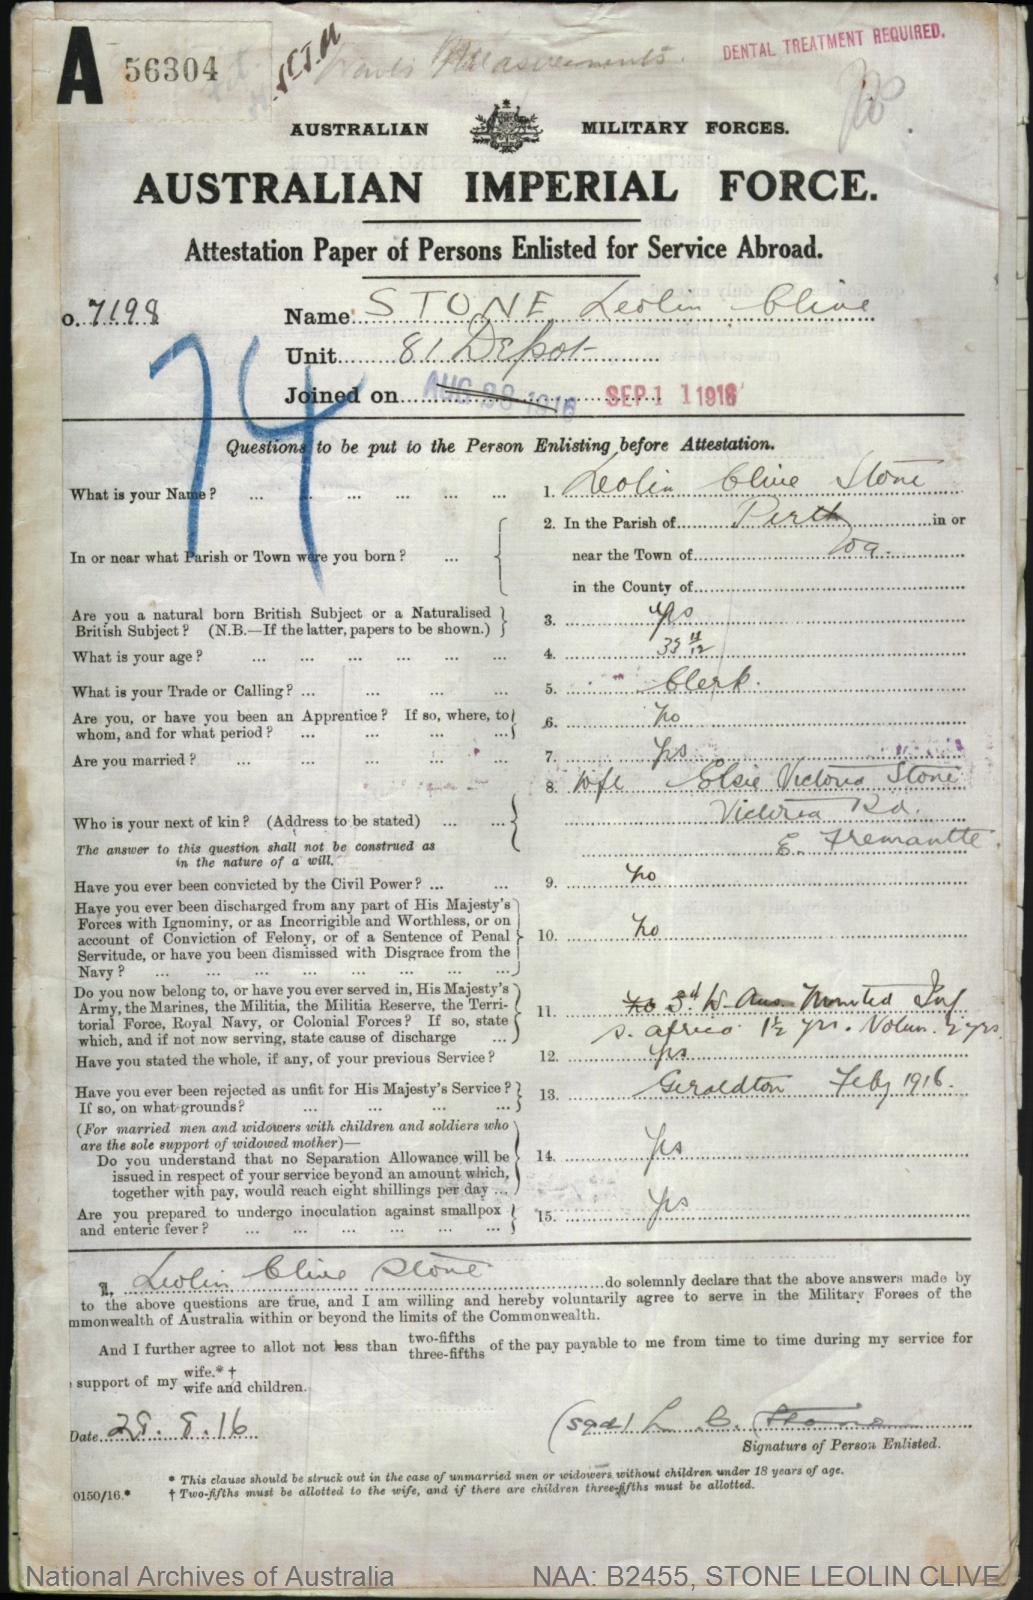 A 56304
DENTAL TREATMENT REQUIRED.
Measurements.
AUSTRALIAN MILITARY FORCES.
AUSTRALIAN IMPERIAL FORCE.
Attestation Paper of Persons Enlisted for Service Abroad.
o. 7198 Name STONE Leolin Clive
Unit 81 Depot
74
Joined on AUG 28 1916 SEP 1 1 1916
Questions to be put to the Person Enlisting before Attestation.
What is your Name? ... ... ... ... ... ... 1. Leolin Clive Stone
In or near what Parish or Town were you born? ... 2. In the Parish of Perth in or
near the Town of wa.
in the County of
Are you a natural born British Subject or a Naturalised
British Subject? (N.B.—If the latter, papers to be shown.) 3. yes
What is your age? ... ... ... ... ... ... 4. 33 11/12
What is your Trade or Calling? ... ... ... ... 5. Clerk.
Are you, or have you been an Apprentice? If so, where, to
whom, and for what period? ... ... ... ... 6. no
Are you married? ... ... ... ... ... 7. yes
Who is your next of kin? (Address to be stated) ... ... 8. wife Elsie Victoria Stone
Victoria Rd.
E. Fremantle.
The answer to this question shall not be construed as
in the nature of a will.
Have you ever been convicted by the Civil Power? ... ... 9. no
Have you ever been discharged from any part of His Majesty's
Forces with Ignominy, or as Incorrigible and Worthless, or on
account of Conviction of Felony, or of a Sentence of Penal
Servitude, or have you been dismissed with Disgrace from the
Navy? ... ... ... ... ... ... ... ... 10. no
Do you now belong to, or have you ever served in, His Majesty's
Army, the Marines, the Militia, the Militia Reserve, the Terri-
torial Force, Royal Navy, or Colonial Forces? If so, state
which, and if not now serving, state cause of discharge ... 11. no 3rd W. Aus. Mounted Inf
S. Africa 1½ yrs. Volun. 2 yrs.
Have you stated the whole, if any, of your previous Service? 12. yes
Have you ever been rejected as unfit for His Majesty's Service?
If so, on what grounds? ... ... ... ... 13. Geraldton Feby 1916.
(For married men and widowers with children and soldiers who
are the sole support of widowed mother)—
Do you understand that no Separation Allowance will be
issued in respect of your service beyond an amount which,
together with pay, would reach eight shillings per day ... 14. yes
Are you prepared to undergo inoculation against smallpox
and enteric fever? ... ... ... ... ... ... 15. yes
I, Leolin Clive Stone do solemnly declare that the above answers made by
to the above questions are true, and I am willing and hereby voluntarily agree to serve in the Military Forces of the
mmonwealth of Australia within or beyond the limits of the Commonwealth.
And I further agree to allot not less than two-fifths three-fifths of the pay payable to me from time to time during my service for
support of my wife.* † wife and children.
Date 28.8.16 (sgd) L. C. Stone
Signature of Person Enlisted.
* This clause should be struck out in the case of unmarried men or widowers without children under 18 years of age.
0150/16.* † Two-fifths must be allotted to the wife, and if there are children three-fifths must be allotted.
National Archives of Australia NAA: B2455, STONE LEOLIN CLIVE